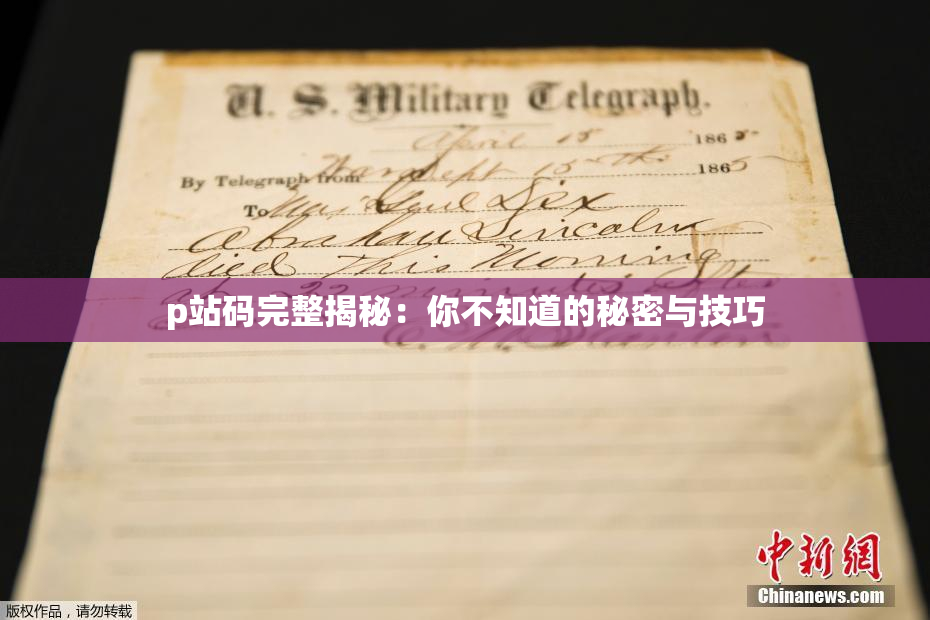 U. S. Military Telegraph.
April 15 1865-
By Telegraph from War Dept 15th 1865
To Maj Genl Dix
Abraham Lincoln
died This Morning
at 22 minutes after
p站码完整揭秘：你不知道的秘密与技巧
E. M. Stanton
中新网
Chinanews.com
版权作品，请勿转载